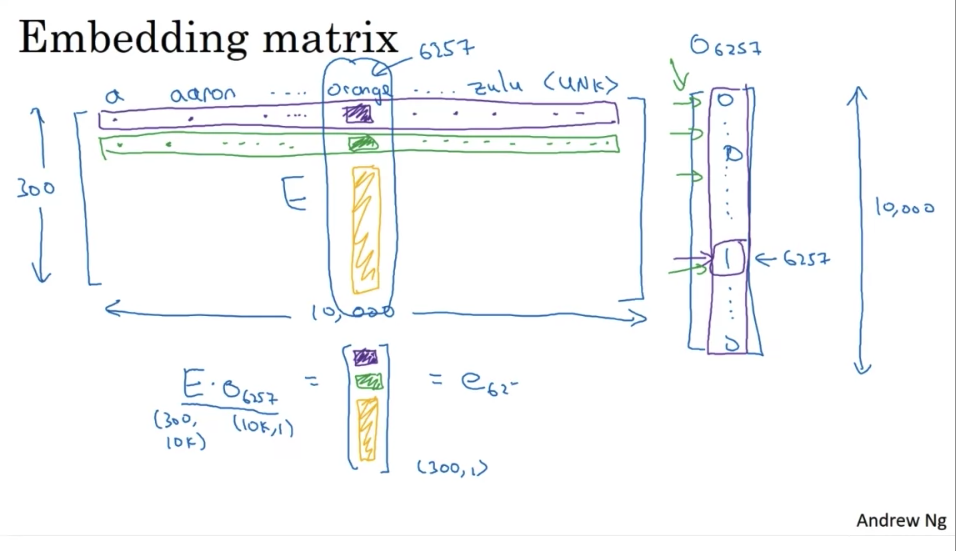 Embedding matrix
6257
O6257
a aaron ..... orange ..... zulu <UNK>
0
0
300
E
10,000
1 ← 6257
10,000
0
E · O6257 = [ ] = e62
(300, 10K) (10K, 1)
(300, 1)
Andrew Ng